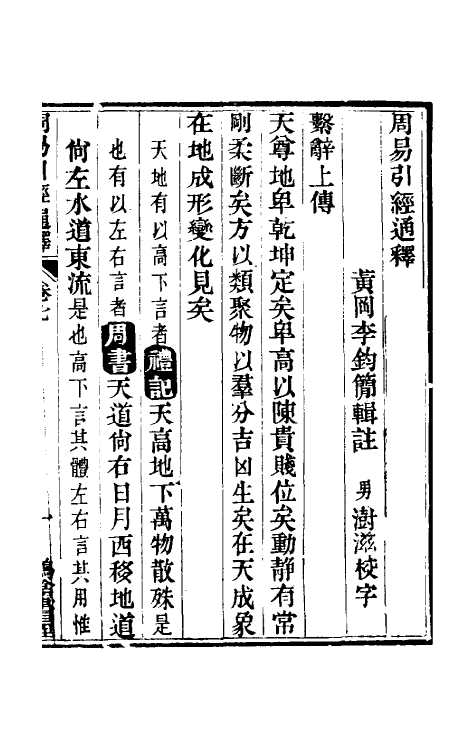 周易引經通釋
黃岡李鈞簡輯註　男澍滋校字
繫辭上傳
天尊地卑乾坤定矣卑高以陳貴賤位矣動靜有常
剛柔斷矣方以類聚物以羣分吉凶生矣在天成象
在地成形變化見矣
天地有以高下言者禮記天高地下萬物散殊是
也有以左右言者周書天道尙右日月西移地道
尙左水道東流是也高下言其體左右言其用惟
周易引經通釋　卷七　一